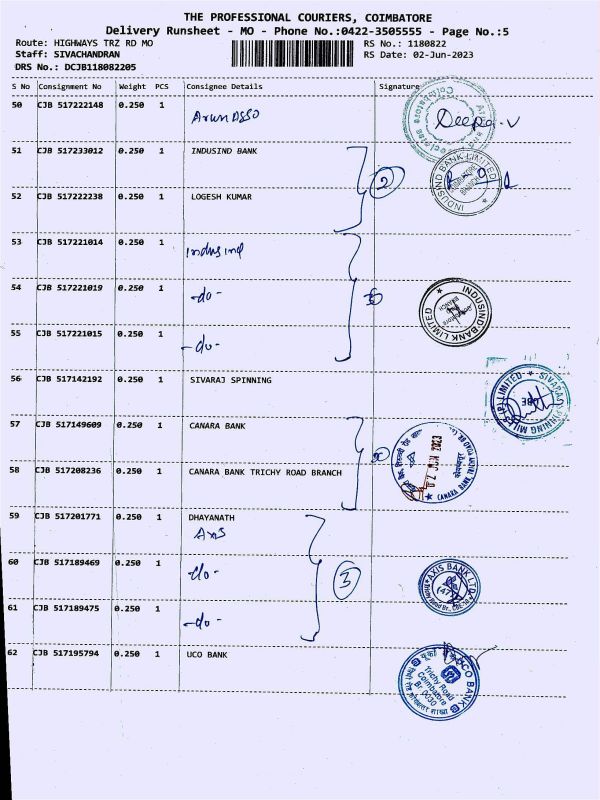 THE PROFESSIONAL COURIERS, COIMBATORE
Delivery Runsheet - MO - Phone No.:0422-3505555 - Page No.:5
Route: HIGHWAYS TRZ RD MO
RS No.: 1180822
Staff: SIVACHANDRAN
RS Date: 02-Jun-2023
DRS No.: DCJB118082205
S No Consignment No Weight PCS Consignee Details Signature
50 CJB 517222148 0.250 1 Arun Asso
Deepa.V
51 CJB 517233012 0.250 1 INDUSIND BANK
INDUSIND BANK LIMITED
2
52 CJB 517222238 0.250 1 LOGESH KUMAR
53 CJB 517221014 0.250 1 Indusind
54 CJB 517221019 0.250 1 -do-
INDUSIND BANK LIMITED
BRANCH
55 CJB 517221015 0.250 1 -do-
56 CJB 517142192 0.250 1 SIVARAJ SPINNING
SIVARAJ SPINNING MILLS (P) LIMITED
CBE
57 CJB 517149609 0.250 1 CANARA BANK
02 JUN 2023
CANARA BANK
58 CJB 517208236 0.250 1 CANARA BANK TRICHY ROAD BRANCH
59 CJB 517201771 0.250 1 DHAYANATH
Axis
60 CJB 517189469 0.250 1 -do-
3
AXIS BANK LTD
61 CJB 517189475 0.250 1 -do-
62 CJB 517195794 0.250 1 UCO BANK
UCO BANK
Trichy Road
Coimbatore
Br. 0030